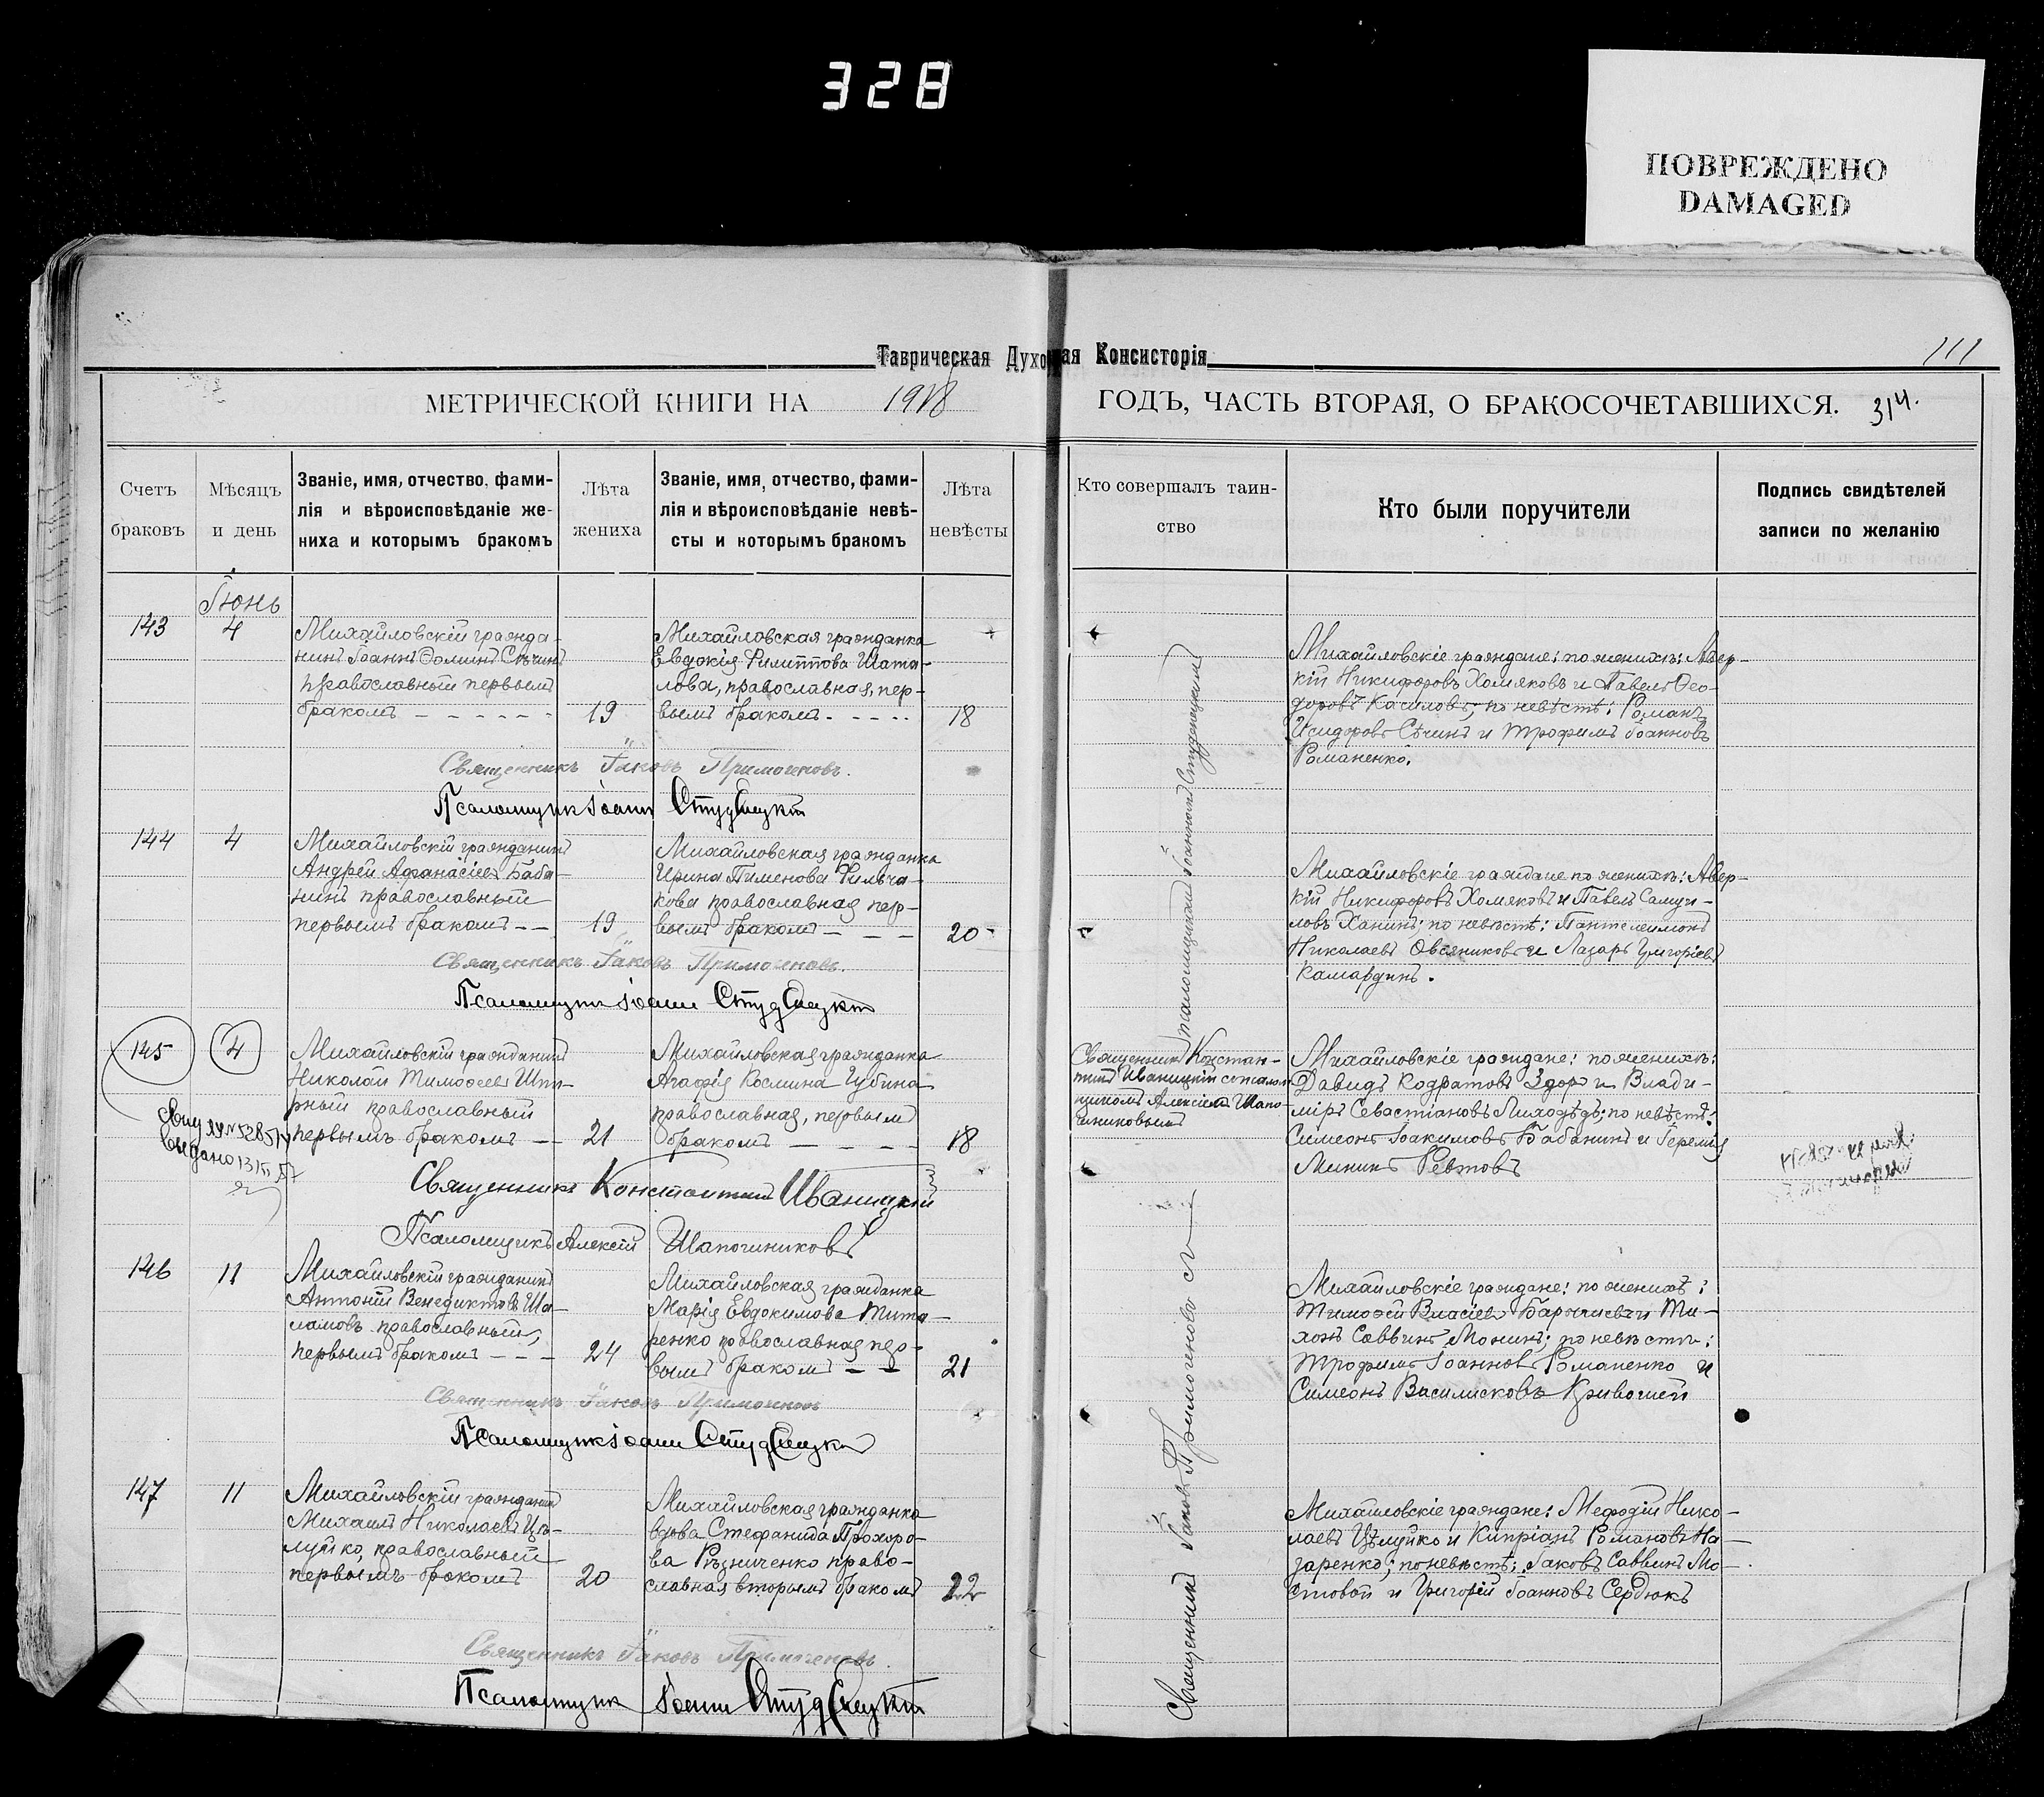 328
ПОВРЕЖДЕНО
DAMAGED
Таврическая Духовная Консисторія
111
МЕТРИЧЕСКОЙ КНИГИ НА 1918 ГОДЪ, ЧАСТЬ ВТОРАЯ, О БРАКОСОЧЕТАВШИХСЯ. 314.
Счетъ
браковъ
Мѣсяцъ
и день
Званіе, имя, отчество, фами-
лія и вѣроисповѣданіе же-
ниха и которымъ бракомъ
Лѣта
жениха
Званіе, имя, отчество, фами-
лія и вѣроисповѣданіе невѣ-
сты и которымъ бракомъ
Лѣта
невѣсты
Кто совершалъ таин-
ство
Кто были поручители
Подпись свидѣтелей
записи по желанію
Іюнь
143
4
Михайловскій гражда-
нинъ Іоаннъ Ѳоминъ Сѣчинъ
православный первымъ
бракомъ
19
Михайловская гражданка
Евдокія Филиппова Шата-
лова, православная, пер-
вымъ бракомъ
18
Михайловскіе граждане: по женихѣ: Авер-
кій Никифоровъ Хомяковъ и Павелъ Ѳео-
доровъ Касиловъ; по невѣстѣ: Романъ
Исидоровъ Сѣчинъ и Трофимъ Іоанновъ
Романенко.
Священникъ Іаковъ Примоченовъ.
Псаломщикъ Іоаннъ Студенецкій
144
4
Михайловскій гражданинъ
Андрей Афанасіевъ Баба-
нинъ православный
первымъ бракомъ
19
Михайловская гражданка
Ирина Пименова Фильча-
кова православная пер-
вымъ бракомъ
20
Михайловскіе граждане по женихѣ: Авер-
кій Никифоровъ Хомяковъ и Павелъ Самуи-
ловъ Ханинъ; по невѣстѣ: Пантелеимонъ
Николаевъ Овсяниковъ и Лазарь Григоріевъ
Камардинъ.
Священникъ Іаковъ Примоченовъ.
Псаломщикъ Іоаннъ Студенецкій
145
4
Михайловскій гражданинъ
Николай Тимоѳеевъ Шпи-
рный православный
первымъ бракомъ
21
Михайловская гражданка
Агафія Космина Губина
православная, первымъ
бракомъ
18
Священникъ Констан-
тинъ Иваницкій съ псалом-
щикомъ Алексіемъ Шапо-
чниковымъ
Михайловскіе граждане: по женихѣ:
Давидъ Кодратовъ Здоръ и Влади-
міръ Севастіановъ Лиходѣдъ; по невѣстѣ:
Симеонъ Іоакимовъ Бабанинъ и Іеремія
Мининъ Ревтовъ
выдано
Священникъ Константинъ Иваницкій
Псаломщикъ Алексій Шапочниковъ
146
11
Михайловскій гражданинъ
Антоній Венедиктовъ Ша-
ламовъ православный,
первымъ бракомъ
24
Михайловская гражданка
Марія Евдокимова Тита-
ренко православная пер-
вымъ бракомъ
21
Михайловскіе граждане: по женихѣ:
Тимоѳей Власіевъ и Ти-
хонъ Саввинъ Монинъ; по невѣстѣ:
Трофимъ Іоанновъ Романенко и
Симеонъ Василисковъ Кривошей
Священникъ Іаковъ Примоченовъ
Псаломщикъ Іоаннъ Студенецкій
147
11
Михайловскій гражданинъ
Михаилъ Николаевъ Цѣ-
луйко, православный
первымъ бракомъ
20
Михайловская гражданка
вдова Стефанида Прохоро-
ва Рѣзниченко право-
славная вторымъ бракомъ
22
Михайловскіе граждане: Мефодій Нико-
лаевъ Цѣлуйко и Кипріанъ Романовъ На-
заренко; по невѣстѣ: Іаковъ Саввинъ Мо-
стовой и Григорій Іоанновъ Сердюкъ
Священникъ Іаковъ Примоченовъ.
Псаломщикъ Іоаннъ Студенецкій
Священникъ Іаковъ Примоченовъ съ псаломщикомъ Іоанномъ Студенецкимъ